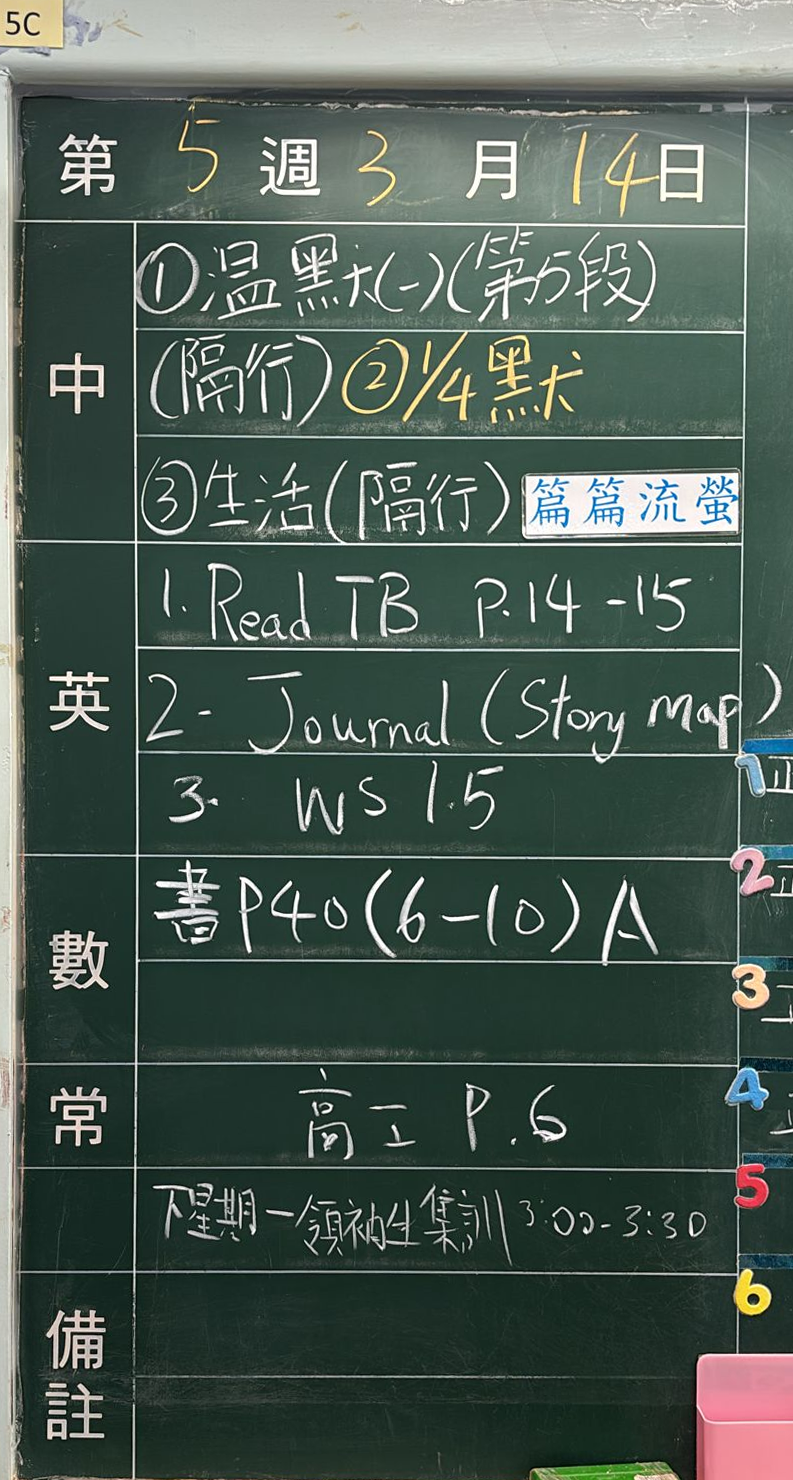 5C
第 5 週 3 月 14 日
中
①温默(一)(第5段)
(隔行)②1/4默
③生活(隔行) 篇篇流螢
英
1. Read TB P.14-15
2- Journal (Story map)
3. WS 1.5
數
書P40(6-10)A
常
高工 P.6
下星期一領袖生集訓 3:00-3:30
備註
1
2
3
4
5
6